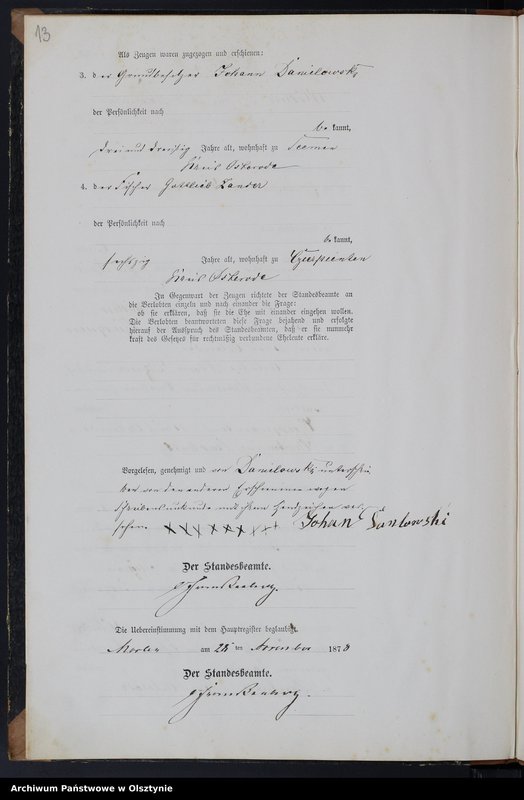 13
Als Zeugen waren zugezogen und erschienen:
3. der Grundbesitzer Johann Danielowski
der Persönlichkeit nach
be kannt,
drei und dreißig Jahre alt, wohnhaft zu
Kreis Osterode
4. der Fischer Gottlieb Lander
der Persönlichkeit nach
be kannt,
sechszig Jahre alt, wohnhaft zu
Kreis Osterode
In Gegenwart der Zeugen richtete der Standesbeamte an
die Verlobten einzeln und nach einander die Frage:
ob sie erklären, daß sie die Ehe mit einander eingehen wollen.
Die Verlobten beantworteten diese Frage bejahend und erfolgte
hierauf der Ausspruch des Standesbeamten, daß er sie nunmehr
kraft des Gesetzes für rechtmäßig verbundene Eheleute erkläre.
Vorgelesen, genehmigt und von Danielowski unterschrie
ben von den anderen Erschienenen wegen
Schreibensunkunde mit ihren Handzeichen ver
sehen XXX XXX XXX Johan Danlowski
Der Standesbeamte.
Die Uebereinstimmung mit dem Hauptregister beglaubigt.
am 28 ten November 1878
Der Standesbeamte.
Archiwum Państwowe w Olsztynie